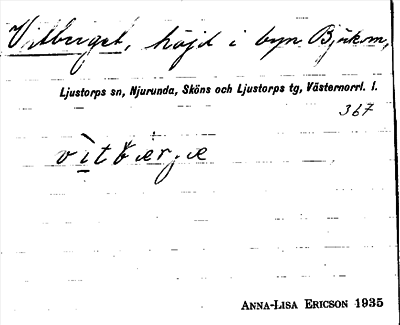 Vitberget, höjd i byn Bjäkom,
Ljustorps sn, Njurunda, Sköns och Ljustorps tg, Västernorrl. l.
367
vìtbærjæ
ANNA-LISA ERICSON 1935